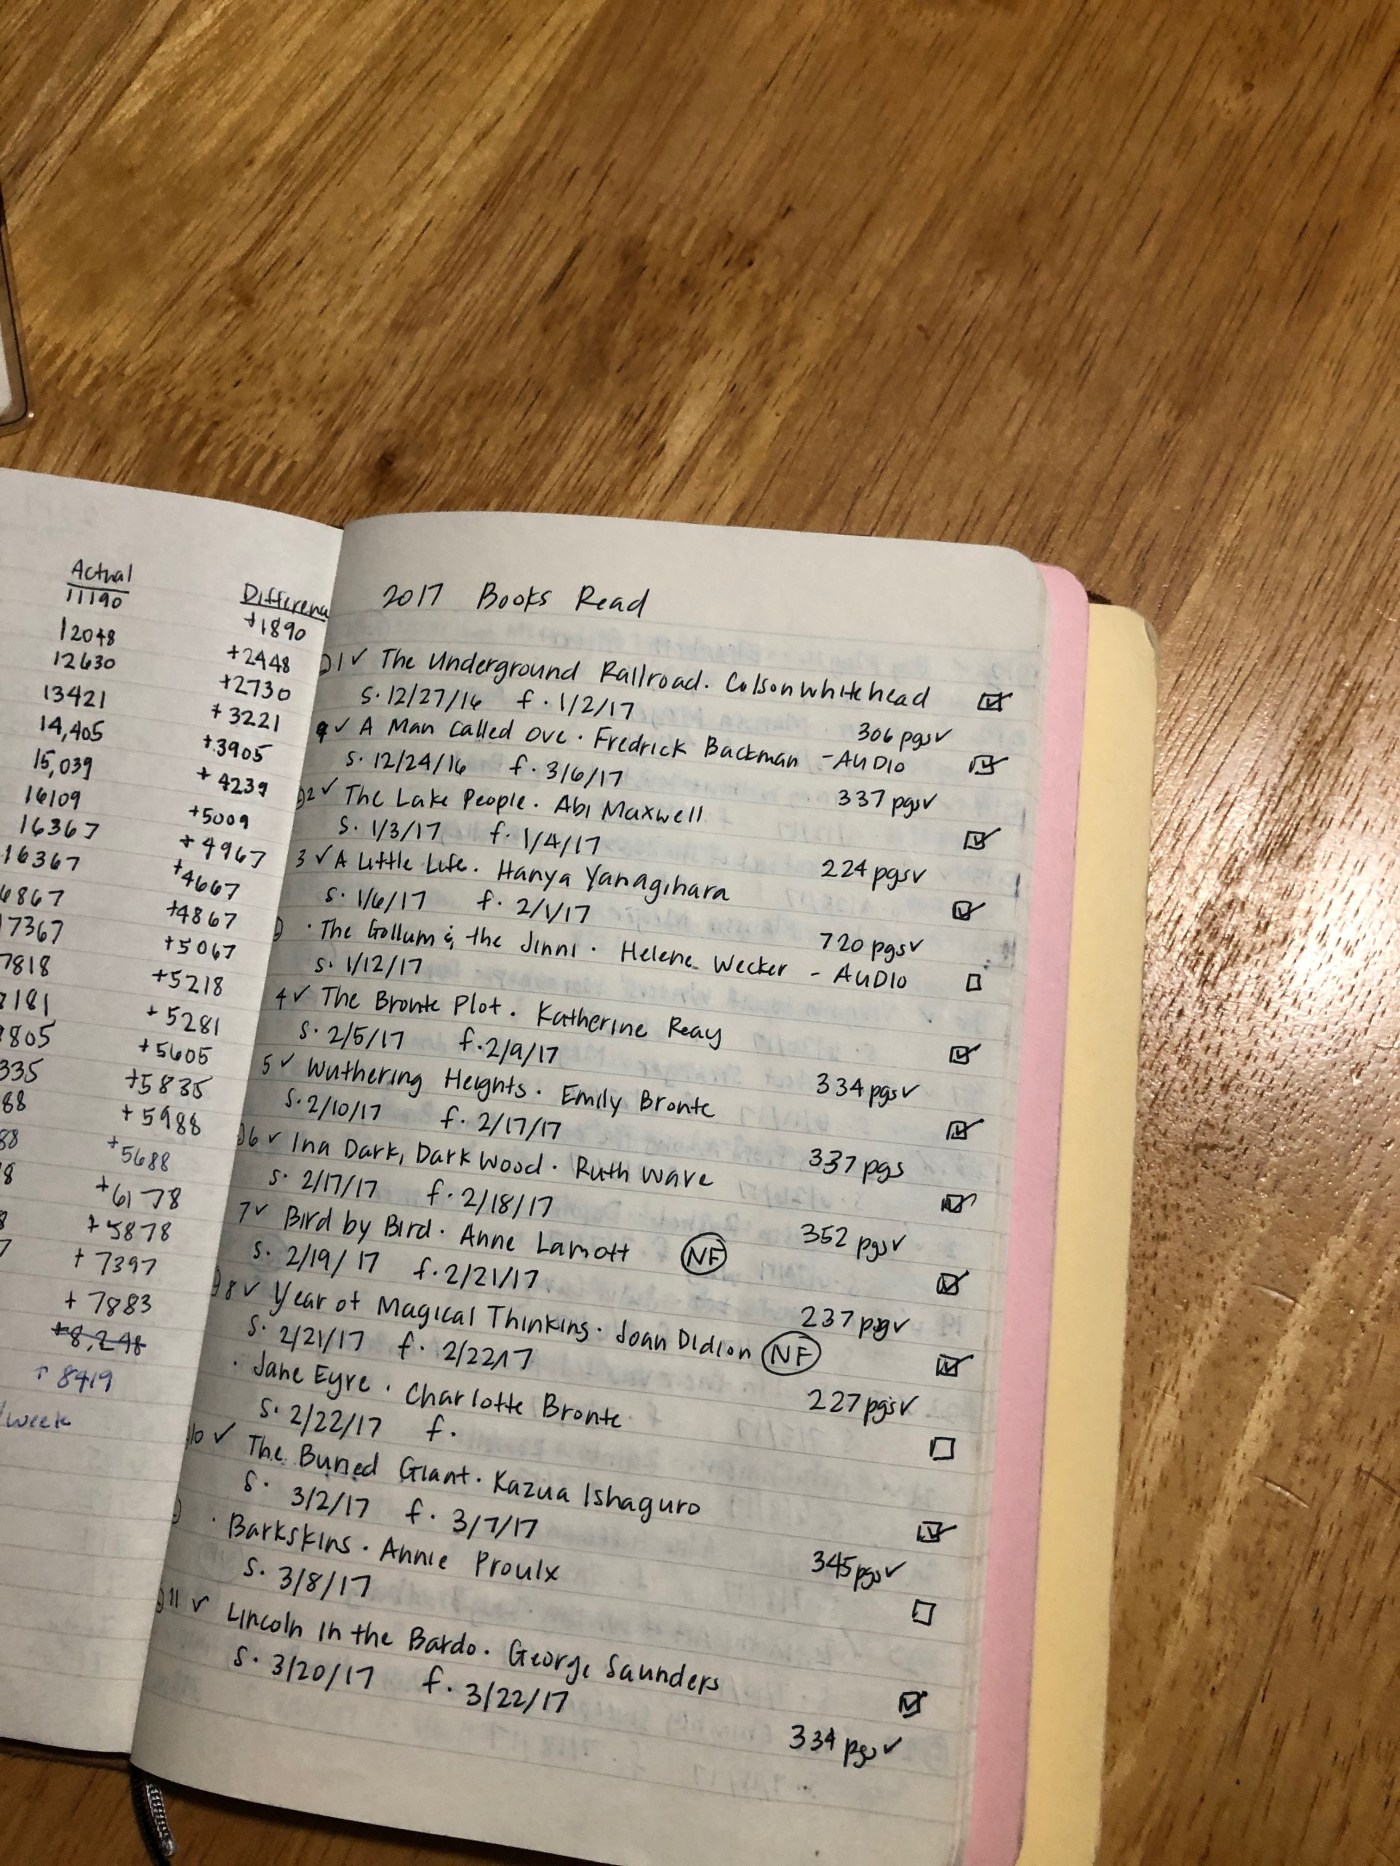 Actual
11190
12048
12630
13421
14,405
15,039
16109
16367
16367
6867
7367
7818
181
805
335
88
88
8
8
7
/week
Differenc
+1890
+2448
+2730
+3221
+3905
+4239
+5009
+4967
+4667
+4867
+5067
+5218
+5281
+5605
+5835
+5988
+5688
+6178
+5878
+7397
+7883
+8,248
↑8419
2017 Books Read
1✓ The Underground Railroad. Colson Whitehead ☑
s. 12/27/16 f. 1/2/17 306 pgs✓
9✓ A Man Called Ove. Fredrick Backman - AUDIO ☑
s. 12/24/16 f. 3/6/17 337 pgs✓
2✓ The Lake People. Abi Maxwell ☑
s. 1/3/17 f. 1/4/17 224 pgs✓
3 ✓ A Little Life. Hanya Yanagihara ☑
s. 1/6/17 f. 2/1/17 720 pgs✓
· The Gollum & the Jinni. Helene Wecker - AUDIO ☐
s. 1/12/17
4✓ The Bronte Plot. Katherine Reay ☑
s. 2/5/17 f. 2/9/17 334 pgs✓
5✓ Wuthering Heights. Emily Bronte ☑
s. 2/10/17 f. 2/17/17 337 pgs
6✓ Ina Dark, Dark Wood. Ruth Ware ☑
s. 2/17/17 f. 2/18/17 352 pgs✓
7✓ Bird by Bird. Anne Lamott NF ☑
s. 2/19/17 f. 2/21/17 237 pgs✓
8✓ Year of Magical Thinking. Joan Didion NF ☑
s. 2/21/17 f. 2/22/17 227 pgs✓
· Jane Eyre. Charlotte Bronte ☐
s. 2/22/17 f.
10 ✓ The Buried Giant. Kazua Ishaguro ☑
s. 3/2/17 f. 3/7/17 345 pgs✓
· Barkskins. Annie Proulx ☐
s. 3/8/17
11 ✓ Lincoln in the Bardo. George Saunders ☑
s. 3/20/17 f. 3/22/17 334 pgs✓